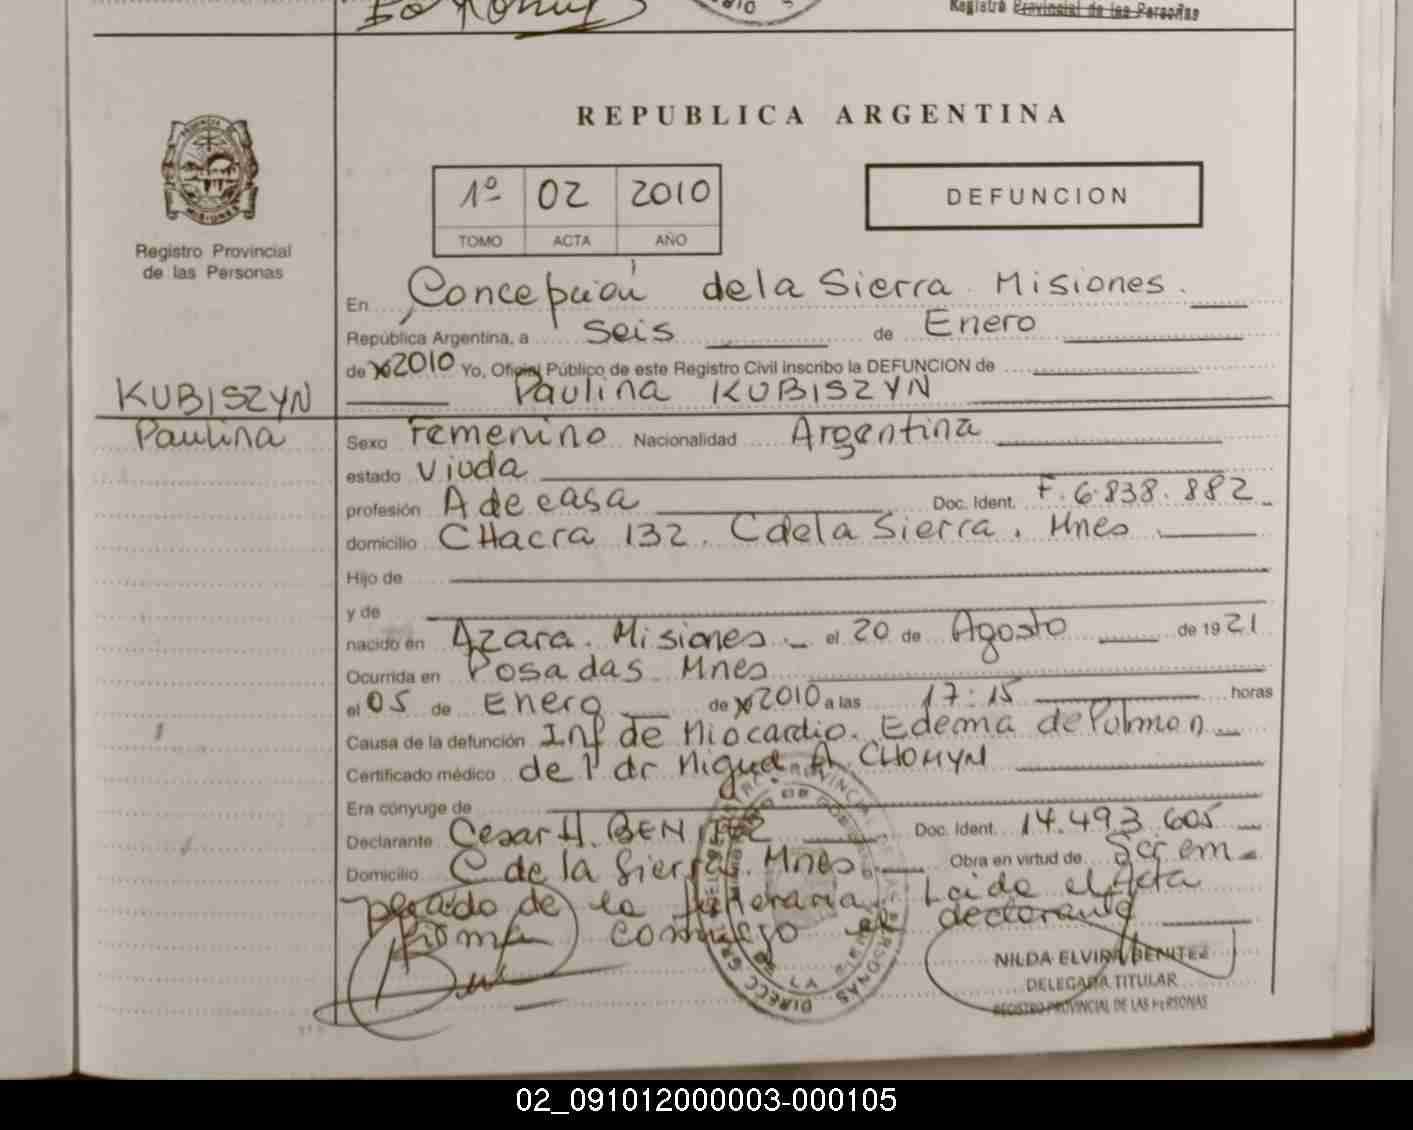 Registro Provincial de las Personas
REPUBLICA ARGENTINA
1º 02 2010
TOMO ACTA AÑO
DEFUNCION
PROVINCIA DE
MISIONES
Registro Provincial
de las Personas
En Concepción de la Sierra Misiones.
República Argentina, a seis de Enero
de 2010 Yo, Oficial Público de este Registro Civil inscribo la DEFUNCION de
KUBISZYN
Paulina
Paulina KUBISZYN
Sexo Femenino Nacionalidad Argentina
estado Viuda
profesión A de casa Doc. Ident. F. 6.838.882
domicilio CHacra 132. C de la Sierra. Mnes
Hijo de
y de
nacido en Azara. Misiones el 20 de Agosto de 1921
Ocurrida en Posadas Mnes
el 05 de Enero de 2010 a las 17:15 horas
Causa de la defunción Inf de Miocardio. Edema de Pulmon
Certificado médico del dr Miguel A. CHOMYN
Era cónyuge de
Declarante Cesar H. BENITEZ Doc. Ident. 14.493.605
Domicilio C de la Sierra. Mnes. Obra en virtud de Ser em-
pleado de la funeraria. Leida el Acta
firma conmigo el declarante
NILDA ELVIRA BENITEZ
DELEGADA TITULAR
REGISTRO PROVINCIAL DE LAS PERSONAS
02_091012000003-000105